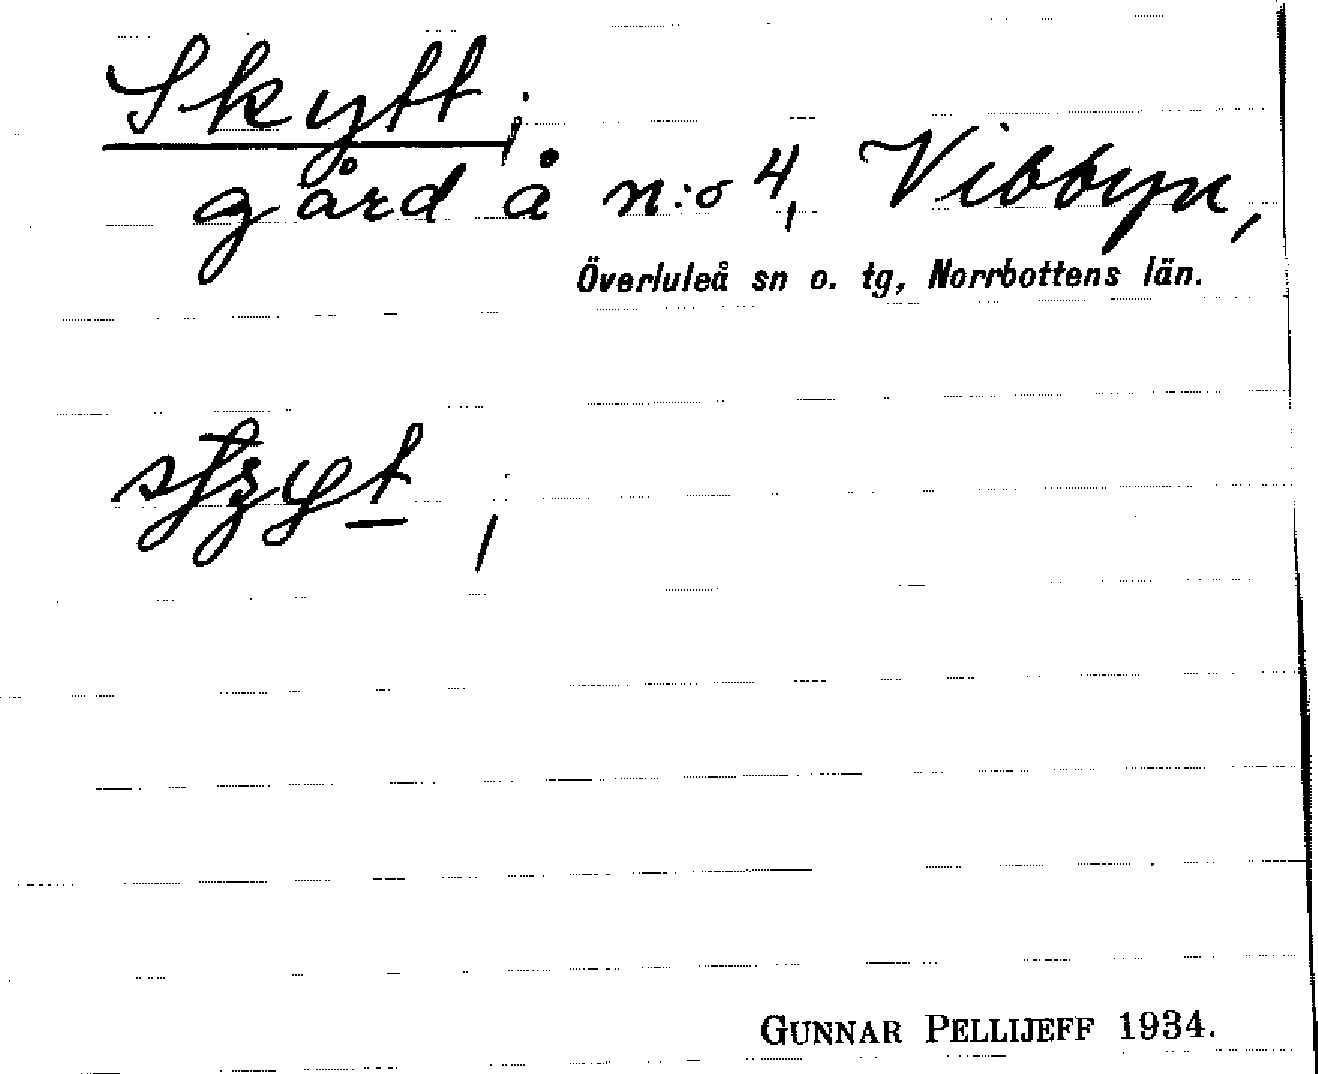 Skytt;
gård å n:o 4, Vibbyn,
Överluleå sn o. tg, Norrbottens län.
GUNNAR PELLIJEFF 1934.